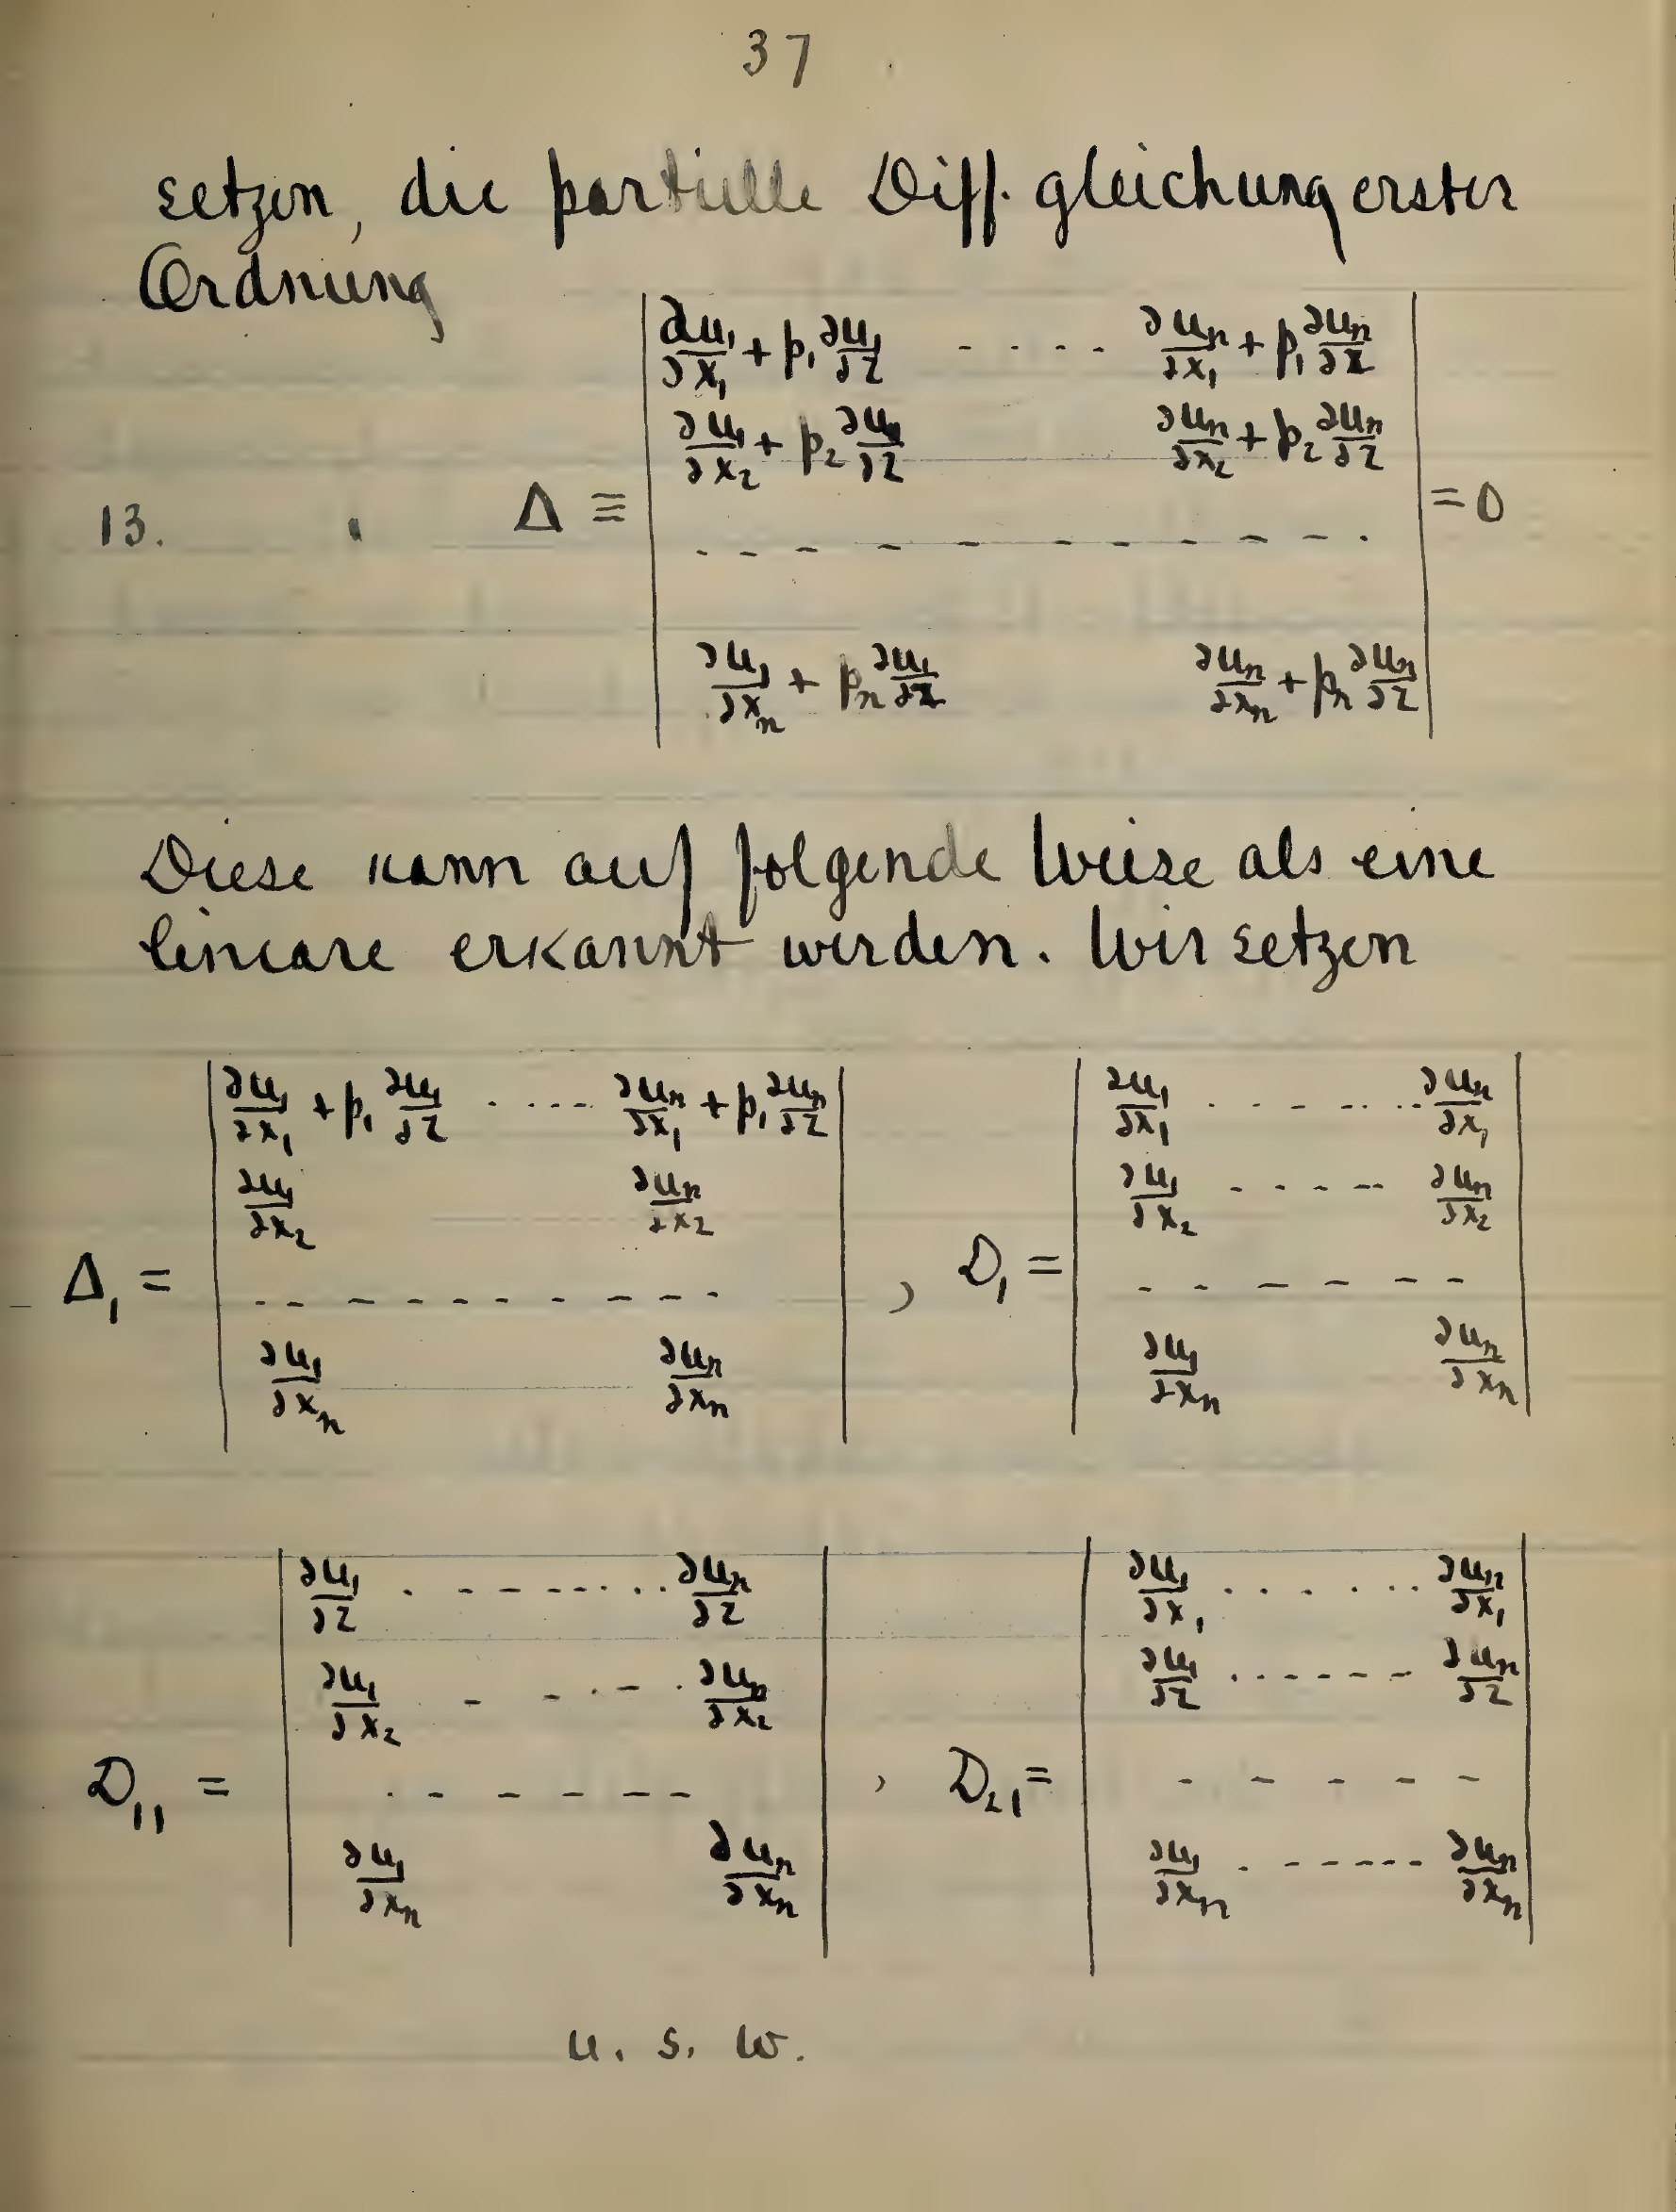 37
setzen, die partielle Diff. gleichung erster
Ordnung
13. $\Delta \equiv \begin{vmatrix} \frac{\partial u_1}{\partial x_1} + p_1 \frac{\partial u_1}{\partial z} & \cdots & \frac{\partial u_n}{\partial x_1} + p_1 \frac{\partial u_n}{\partial z} \\ \frac{\partial u_1}{\partial x_2} + p_2 \frac{\partial u_1}{\partial z} & & \frac{\partial u_n}{\partial x_2} + p_2 \frac{\partial u_n}{\partial z} \\ \cdots & \cdots & \cdots \\ \frac{\partial u_1}{\partial x_n} + p_n \frac{\partial u_1}{\partial z} & & \frac{\partial u_n}{\partial x_n} + p_n \frac{\partial u_n}{\partial z} \end{vmatrix} = 0$
Diese kann auf folgende Weise als eine
lineare erkannt werden. Wir setzen
$\Delta_1 = \begin{vmatrix} \frac{\partial u_1}{\partial x_1} + p_1 \frac{\partial u_1}{\partial z} & \cdots & \frac{\partial u_n}{\partial x_1} + p_1 \frac{\partial u_n}{\partial z} \\ \frac{\partial u_1}{\partial x_2} & & \frac{\partial u_n}{\partial x_2} \\ \cdots & \cdots & \cdots \\ \frac{\partial u_1}{\partial x_n} & & \frac{\partial u_n}{\partial x_n} \end{vmatrix}, D_1 = \begin{vmatrix} \frac{\partial u_1}{\partial x_1} & \cdots & \frac{\partial u_n}{\partial x_1} \\ \frac{\partial u_1}{\partial x_2} & \cdots & \frac{\partial u_n}{\partial x_2} \\ \cdots & \cdots & \cdots \\ \frac{\partial u_1}{\partial x_n} & & \frac{\partial u_n}{\partial x_n} \end{vmatrix}$
$D_{11} = \begin{vmatrix} \frac{\partial u_1}{\partial z} & \cdots & \frac{\partial u_n}{\partial z} \\ \frac{\partial u_1}{\partial x_2} & \cdots & \frac{\partial u_n}{\partial x_2} \\ \cdots & \cdots & \cdots \\ \frac{\partial u_1}{\partial x_n} & & \frac{\partial u_n}{\partial x_n} \end{vmatrix}, D_{21} = \begin{vmatrix} \frac{\partial u_1}{\partial x_1} & \cdots & \frac{\partial u_n}{\partial x_1} \\ \frac{\partial u_1}{\partial z} & \cdots & \frac{\partial u_n}{\partial z} \\ \cdots & \cdots & \cdots \\ \frac{\partial u_1}{\partial x_n} & \cdots & \frac{\partial u_n}{\partial x_n} \end{vmatrix}$
u. s. w.